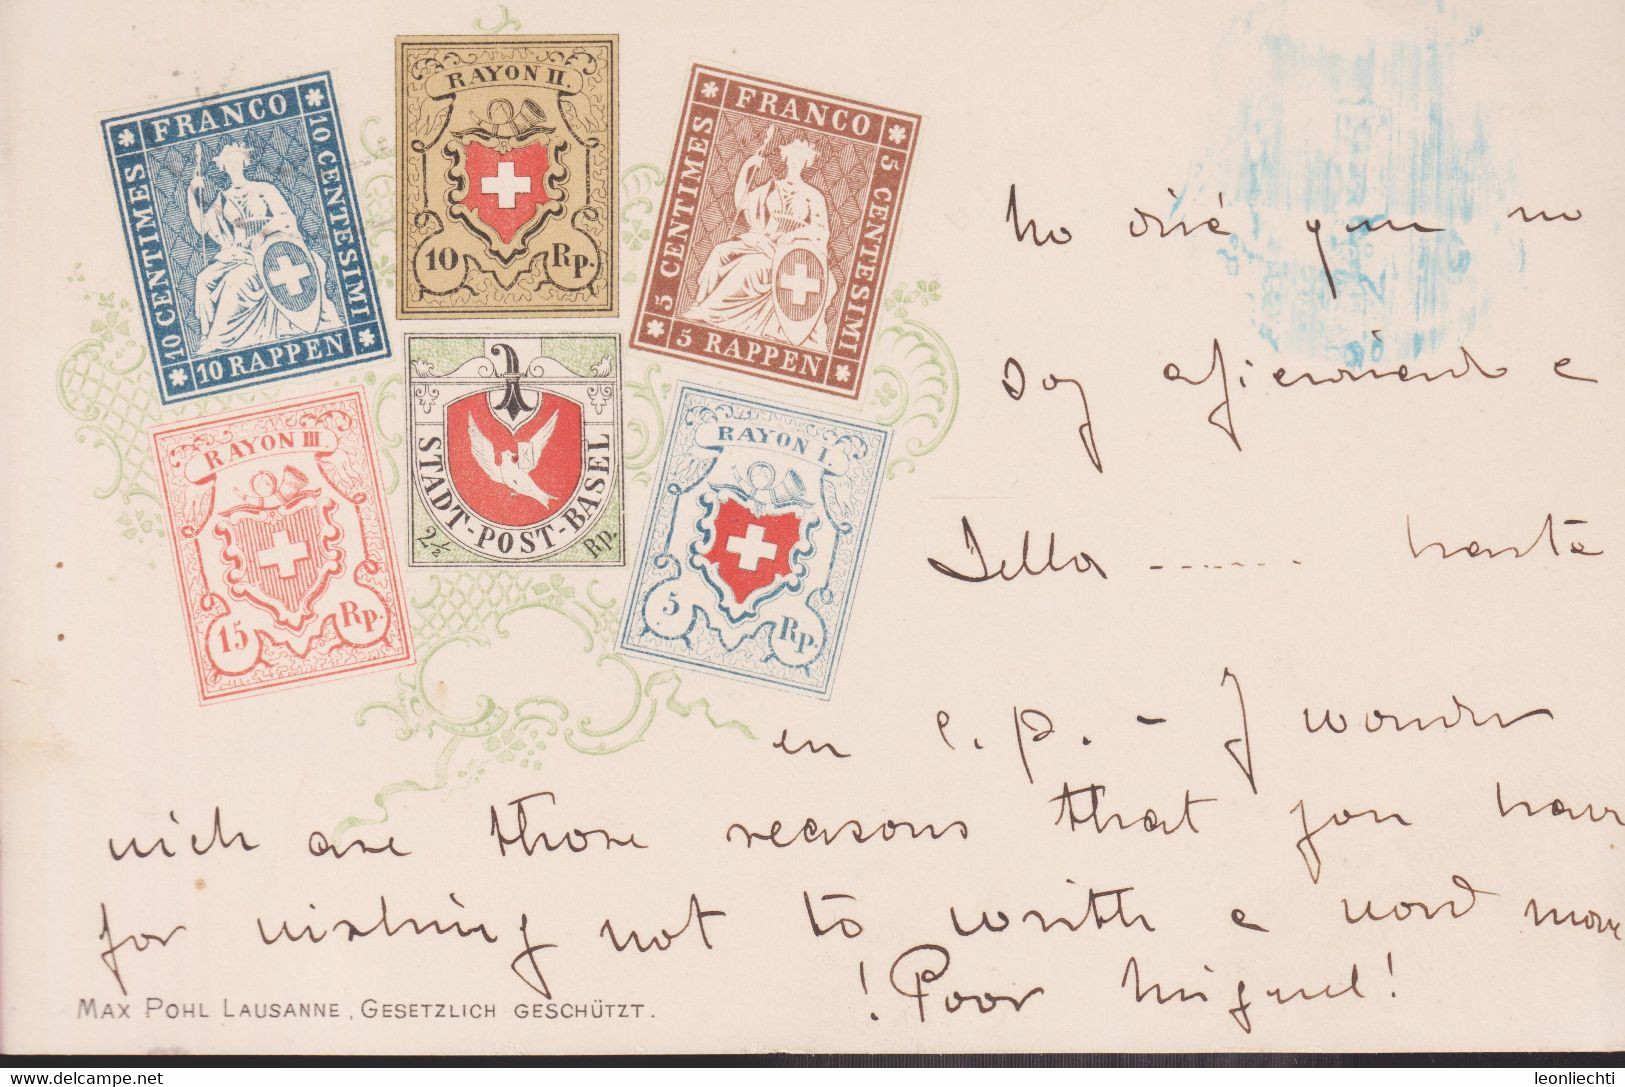 FRANCO
10 CENTIMES
10 CENTESIMI
10 RAPPEN
RAYON II.
10 Rp.
FRANCO
5 CENTIMES
5 CENTESIMI
5 RAPPEN
RAYON III
15 Rp.
STADT-POST-BASEL
2½ Rp.
RAYON I.
5 Rp.
no diré que no
soy aficionado e
Sella ....... hasta
en c.p. - I wonder
wich are those reasons that you have
for wishing not to writh e word more
! Poor Miguel!
MAX POHL LAUSANNE, GESETZLICH GESCHÜTZT.
leonliechti
www.delcampe.net